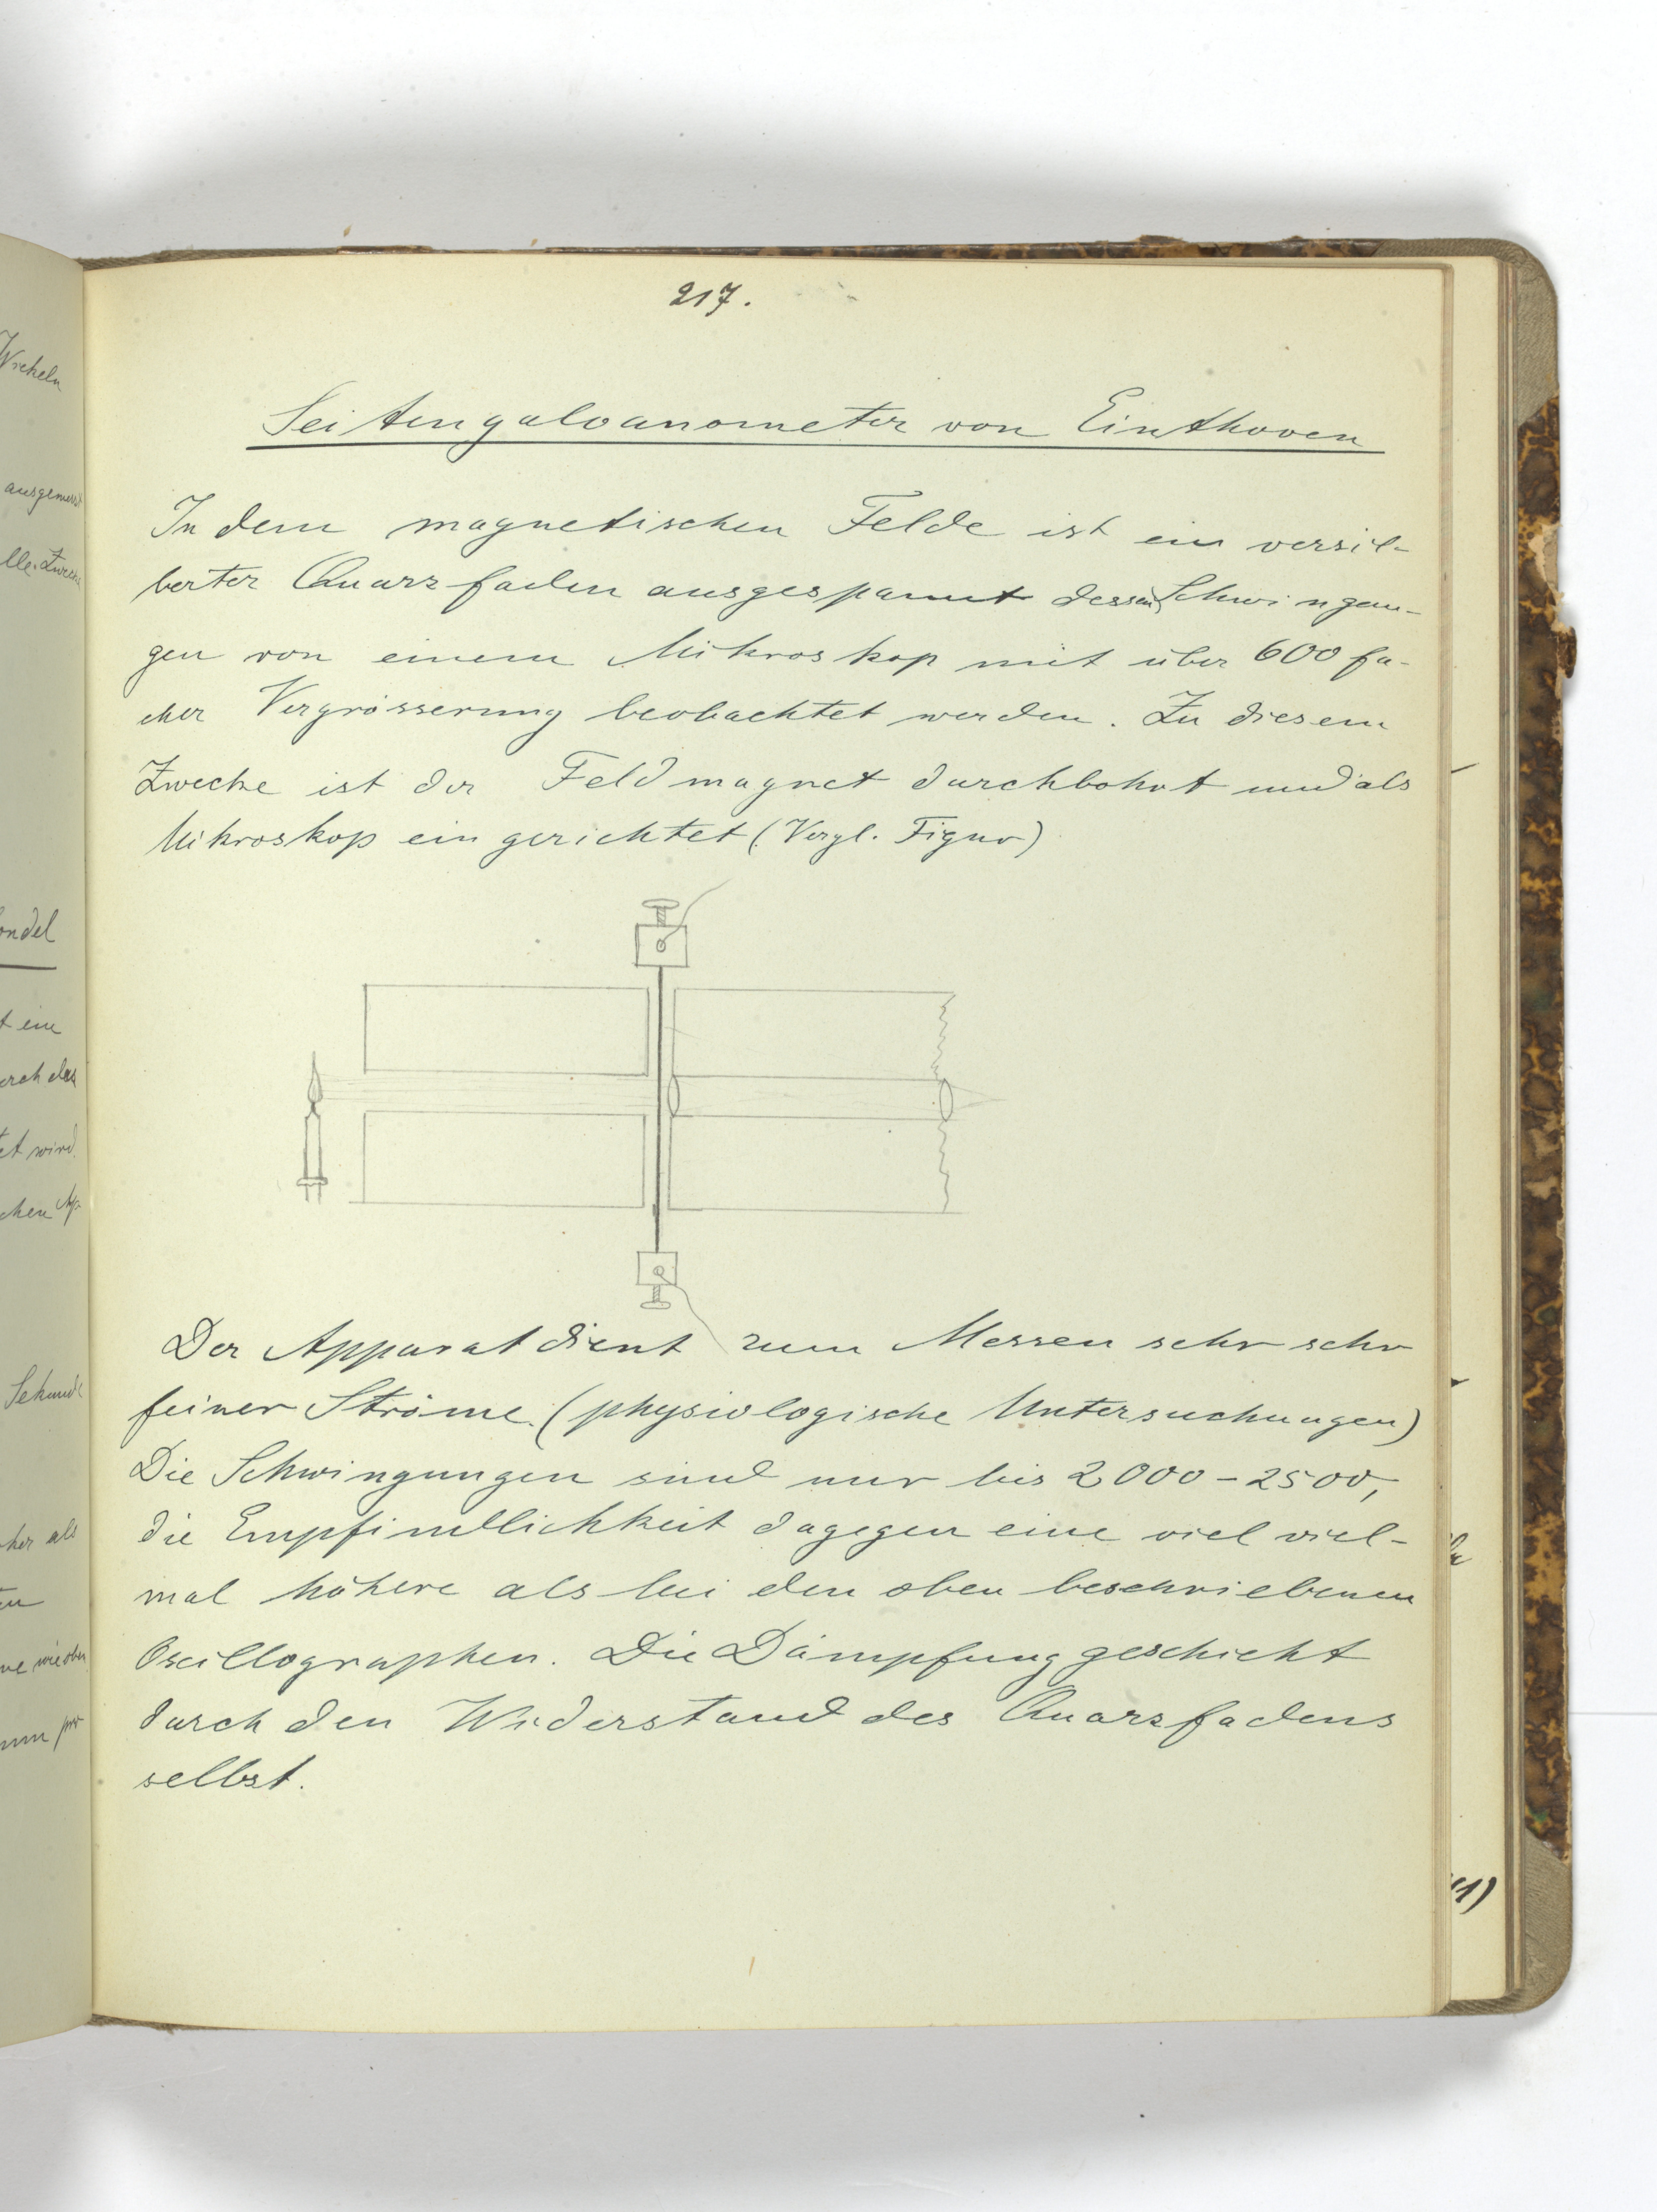 217.
Seitengalvanometer von Einthoven
In dem magnetischen Felde ist ein versil-
berter Quarzfaden ausgespannt dessen Schwingun-
gen von einem Mikroskop mit über 600 fa-
cher Vergrösserung beobachtet werden. Zu diesem
Zwecke ist der Feldmagnet durchbohrt und als
Mikroskop eingerichtet (Vergl. Figur)
Der Apparat dient zum Messen sehr sehr
feiner Ströme. (physiologische Untersuchungen)
Die Schwingungen sind nur bis 2000-2500,
die Empfindlichkeit dagegen eine viel viel-
mal höhere als bei den oben beschriebenen
Oscillographen. Die Dämpfung geschieht
durch den Widerstand des Quarzfadens
selbst.
ondel
t ein
urch das
et wird.
chen Ap-
Sekunde
her als
wie oben